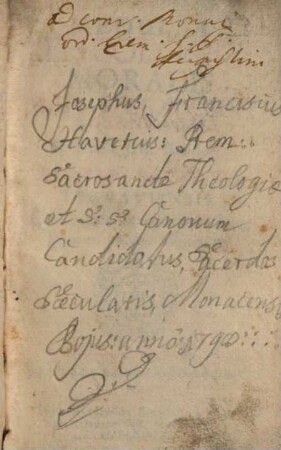 ad conv: Monac
ord: Erem: S. P.
Augustini
Josephus, Franciscus
Havereuis: Rem:
Sacrosanctæ Theologiæ
et S: S: Canonum
Candidatus, Sacerdos
Sæcularis, Monacensis
Bojus: anno 1790: